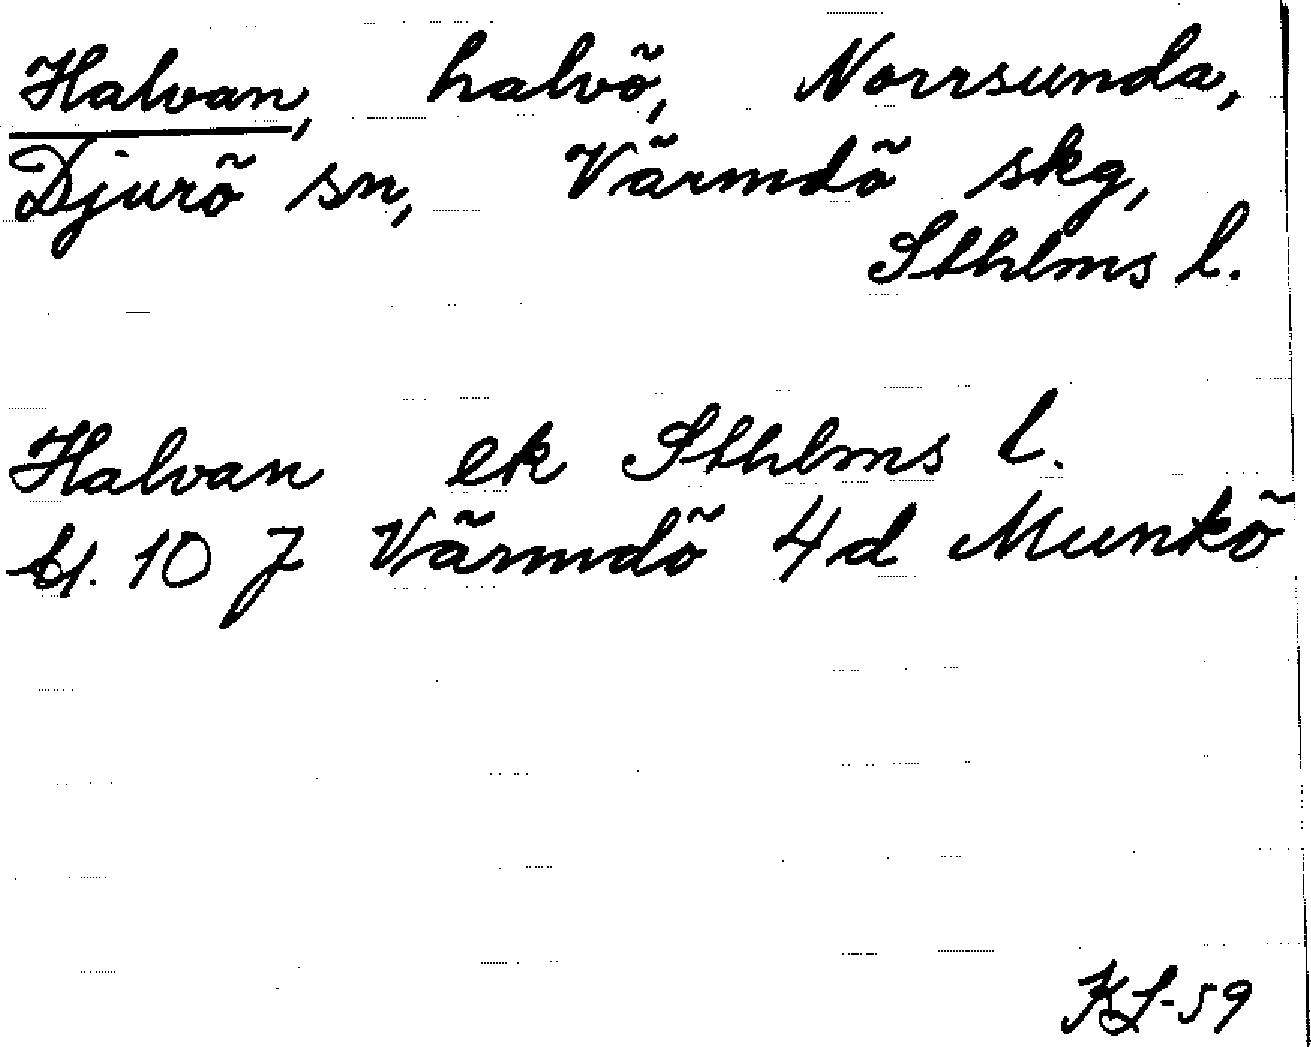 Halvan, halvö, Norrsunda,
Djurö sn, Värmdö skg,
Sthlms l.
Halvan ek Sthlms l.
bl. 10 J Värmdö 4d Munkö
KL-59